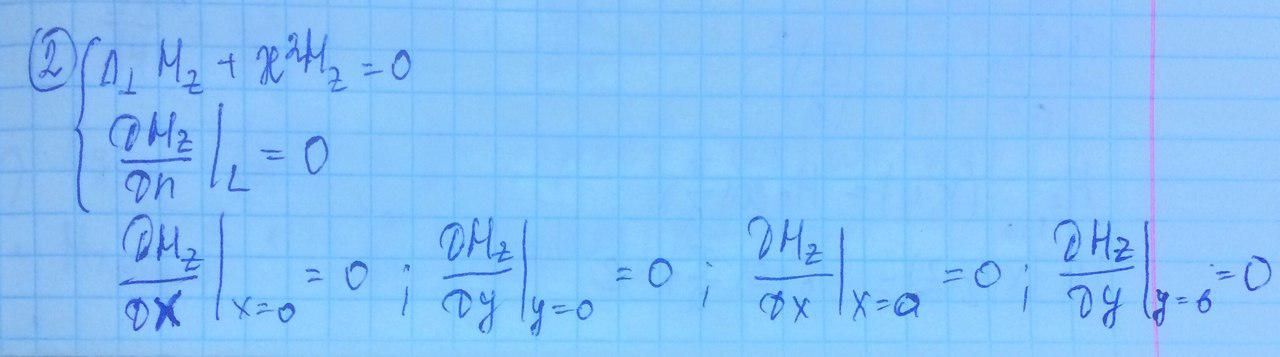 ② { Δ⊥ H_z + ϰ²H_z = 0
∂H_z/∂n |_L = 0
∂H_z/∂x |_{x=0} = 0 ; ∂H_z/∂y |_{y=0} = 0 ; ∂H_z/∂x |_{x=a} = 0 ; ∂H_z/∂y |_{y=b} = 0